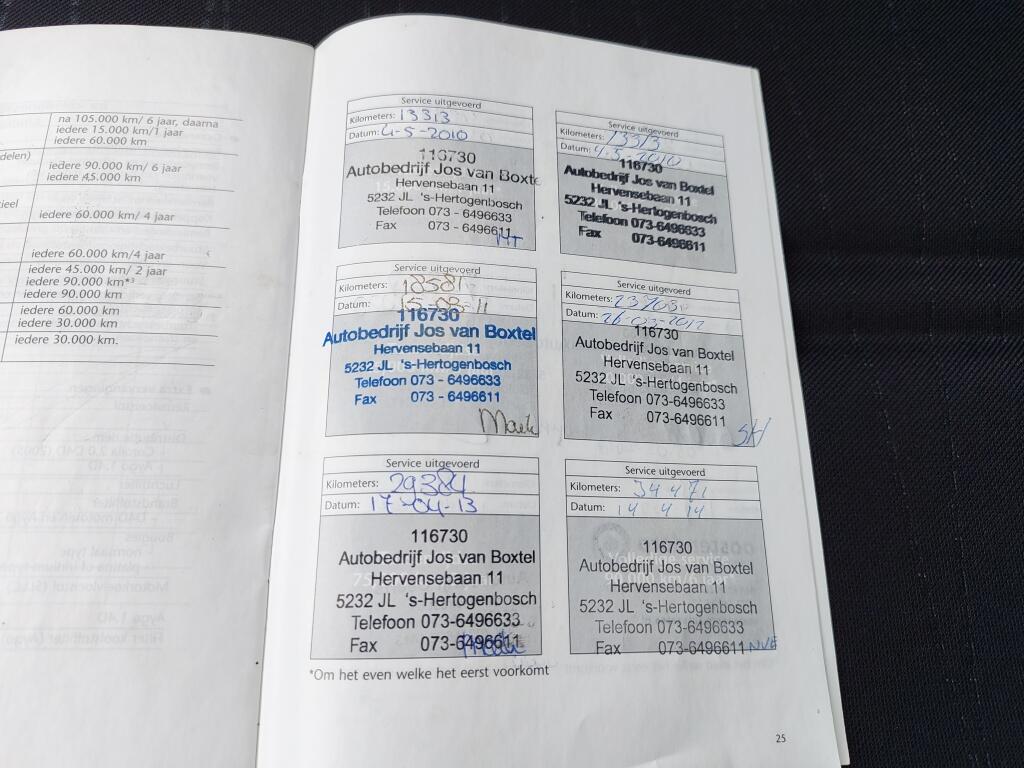 na 105.000 km/ 6 jaar, daarna
iedere 15.000 km/1 jaar
iedere 60.000 km
delen)
iedere 90.000 km/ 6 jaar
iedere 45.000 km
ieel
iedere 60.000 km/ 4 jaar
iedere 60.000 km/4 jaar
iedere 45.000 km/ 2 jaar
iedere 90.000 km*³
iedere 90.000 km
iedere 60.000 km
iedere 30.000 km
iedere 30.000 km.
Service uitgevoerd
Kilometers: 13313
Datum: 4-5-2010
116730
Autobedrijf Jos van Boxte
Hervensebaan 11
5232 JL 's-Hertogenbosch
Telefoon 073 - 6496633
Fax 073 - 6496611
Service uitgevoerd
Kilometers: 13313
Datum: 4-5-2010
116730
Autobedrijf Jos van Boxtel
Hervensebaan 11
5232 JL 's-Hertogenbosch
Telefoon 073-6496633
Fax 073-6496611
Service uitgevoerd
Kilometers: 18581
Datum: 15-08-11
116730
Autobedrijf Jos van Boxtel
Hervensebaan 11
5232 JL 's-Hertogenbosch
Telefoon 073 - 6496633
Fax 073 - 6496611
Mark
Service uitgevoerd
Kilometers:
Datum:
116730
Autobedrijf Jos van Boxtel
Hervensebaan 11
5232 JL 's-Hertogenbosch
Telefoon 073 - 6496633
Fax 073 - 6496611
SH
Service uitgevoerd
Kilometers: 29384
Datum: 17-04-13
116730
Autobedrijf Jos van Boxtel
Hervensebaan 11
5232 JL 's-Hertogenbosch
Telefoon 073-6496633
Fax 073-6496611
Service uitgevoerd
Kilometers: 34471
Datum: 14 4 14
116730
Autobedrijf Jos van Boxtel
Hervensebaan 11
5232 JL 's-Hertogenbosch
Telefoon 073-6496633
Fax 073-6496611 NVE
*Om het even welke het eerst voorkomt
25